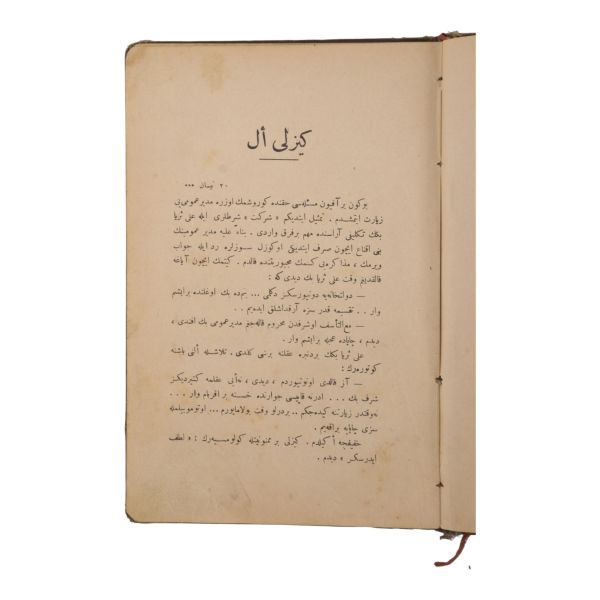 كیزلی أل
٢٠ نیسان ***
بوكون بر آفیون مسئله‌سی حقنده كوروشمك اوزره مدیر عمومی‌یی
زیارت ایتمشدم . تمثیل ایتدیكم « شركت » شرطلری ایله علی ثریا
بكك تكلیفی آراسنده مهم بر فرق واردی . بناءً علیه مدیر عمومینك
بنی اقناع ایچون صرف ایتدیكی اوكوزل سوزلره رد ایله جواب
ویرمك ، مذاكره‌یی كسمك مجبوریتنده قالدم . كیتمك ایچون آیاغه
قالقدیغم وقت علی ثریا بك دیدی كه :
— دولتخانه‌یه دونیورسكز دكلمی ... بنم‌ده بك اوغلنده بر ایشم
وار . . تقسیمه قدر سزه آرقداشلق ایدەیم . .
— مع‌التأسف اوشرفدن محروم قاله‌جغم مدیر عمومی بك افندی ،
دیدم ، چاپاده عجله بر ایشم وار .
علی ثریا بكك بردنبره عقلنه برشی كلدی . تلاشله ألنی باشنه
كوتوره‌رك :
— آز قالدی اونوتیوردم ، دیدی ، نه‌أیی عقلمه كتیردیكز
شرف بك . . . ادرنه قاپیسی جوارنده خسته بر اقربام وار . . .
نه‌وقتدر زیارتنه كیده‌جكم .. بردرلو وقت بولامایورم ... اوتوموبیلمله
سزی چاپایه براقه‌یم .
خفیفجه أكیلدم . كیزلی بر ممنونیتله كولومسیه‌رك : « لطف
ایدرسكز » دیدم .